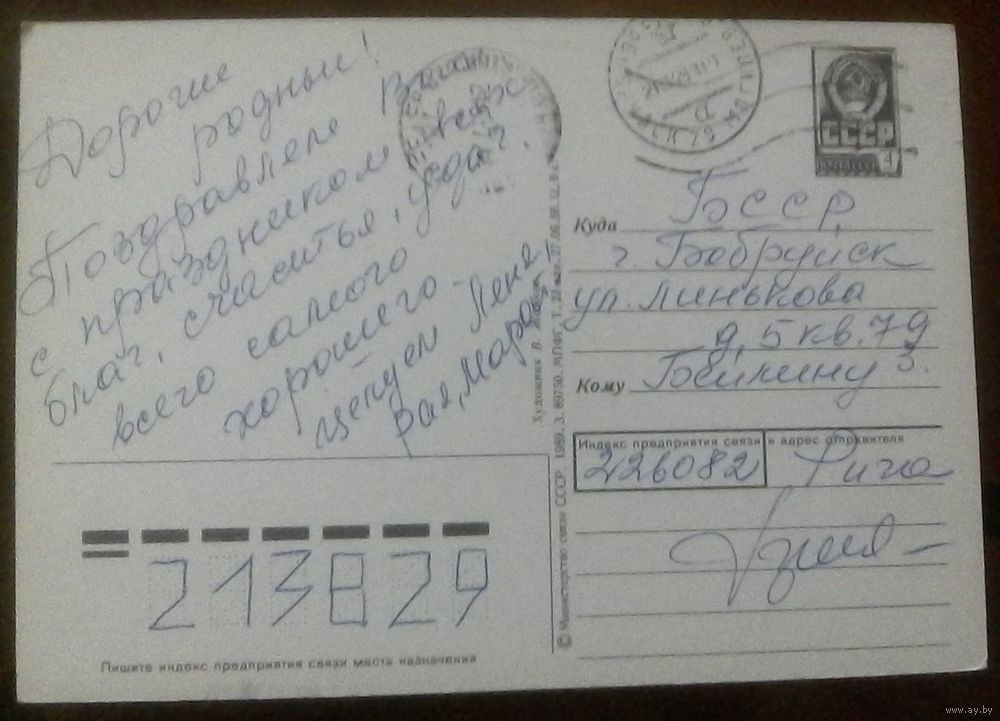 Дорогие
родные!
Поздравляем Вас
с праздником всех
благ, счастья, удач.
всего самого
хорошего.
целуем Лена,
Рая, Марат.
СССР
4
Куда БССР,
г. Бобруйск
ул. Минькова
д. 5 кв. 79
Кому З.
Индекс предприятия связи и адрес отправителя
226082 Рига
213829
Пишите индекс предприятия связи места назначения
© Министерство связи СССР. 1989. З. 89750. МПФГ.
Художник В.
www.ay.by